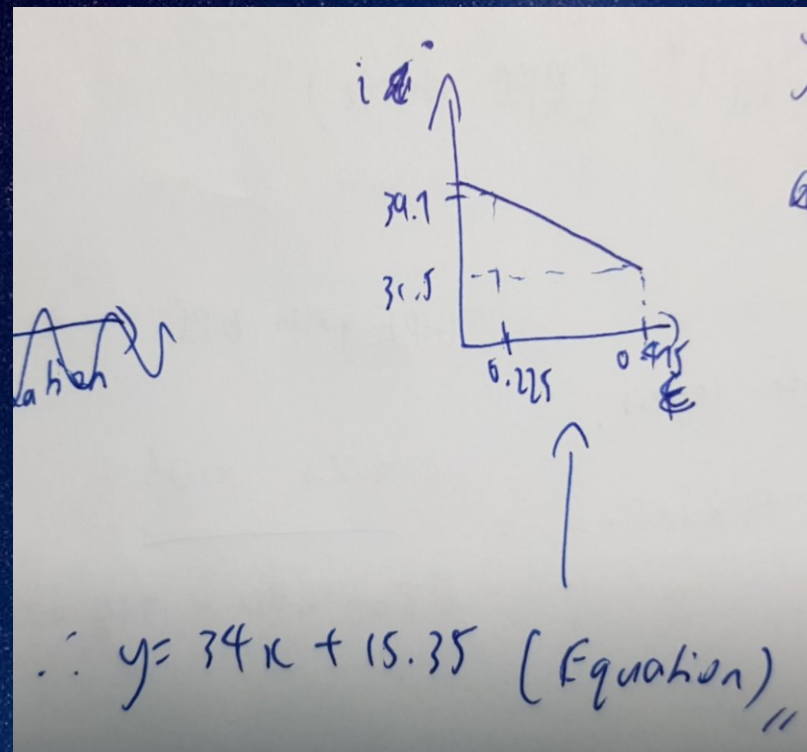 i
39.7
31.5
0.225
0.475
ε
∴ y = 34x + 15.35 (Equation)